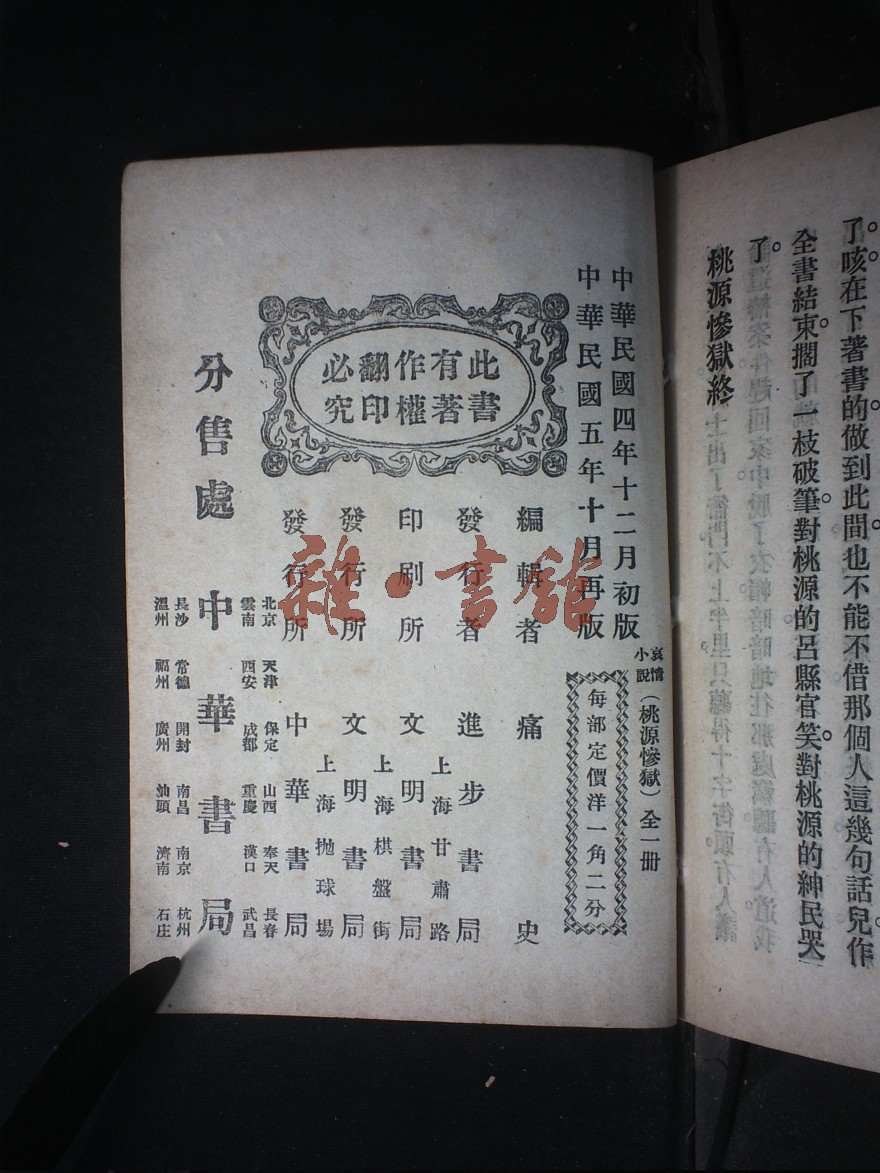 了。咳。在下著書的做到此間也不能不借那個人這幾句話兒作
全書結束。擱了一枝破筆。對桃源的呂縣官笑。對桃源的紳民哭
了。
桃源慘獄終
中華民國四年十二月初版
中華民國五年十月再版
哀情
小說
(桃源慘獄)全一冊
每部定價洋一角二分
此書
有著
作權
翻印
必究
編輯者 痛史
發行者 進步書局
上海甘肅路
印刷所 文明書局
上海棋盤街
發行所 文明書局
上海拋球場
發行所 中華書局
分售處 中華書局
北京 天津 保定 山西 奉天 長春
雲南 西安 成都 重慶 漢口 武昌
長沙 常德 開封 南昌 南京 杭州
溫州 福州 廣州 汕頭 濟南 石庄
雜·書館